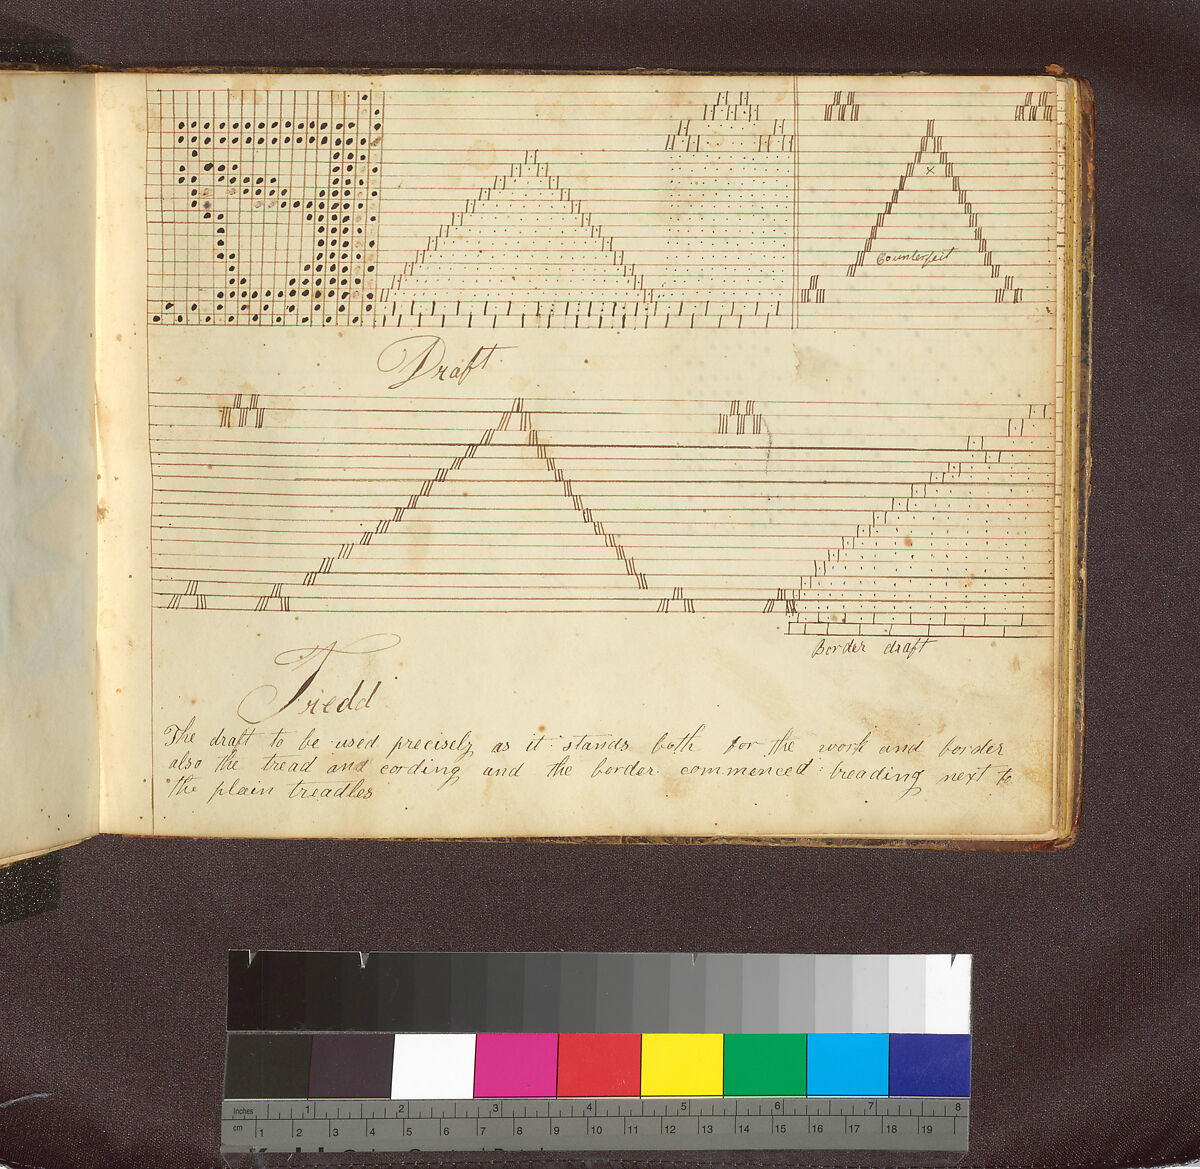 Counterfeit
Draft
Border draft
Tredd
The draft to be used precisely as it stands both for the work and border
also the tread and cording and the border commenced treading next to
the plain treadles
Inches 1 2 3 4 5 6 7 8
cm 1 2 3 4 5 6 7 8 9 10 11 12 13 14 15 16 17 18 19